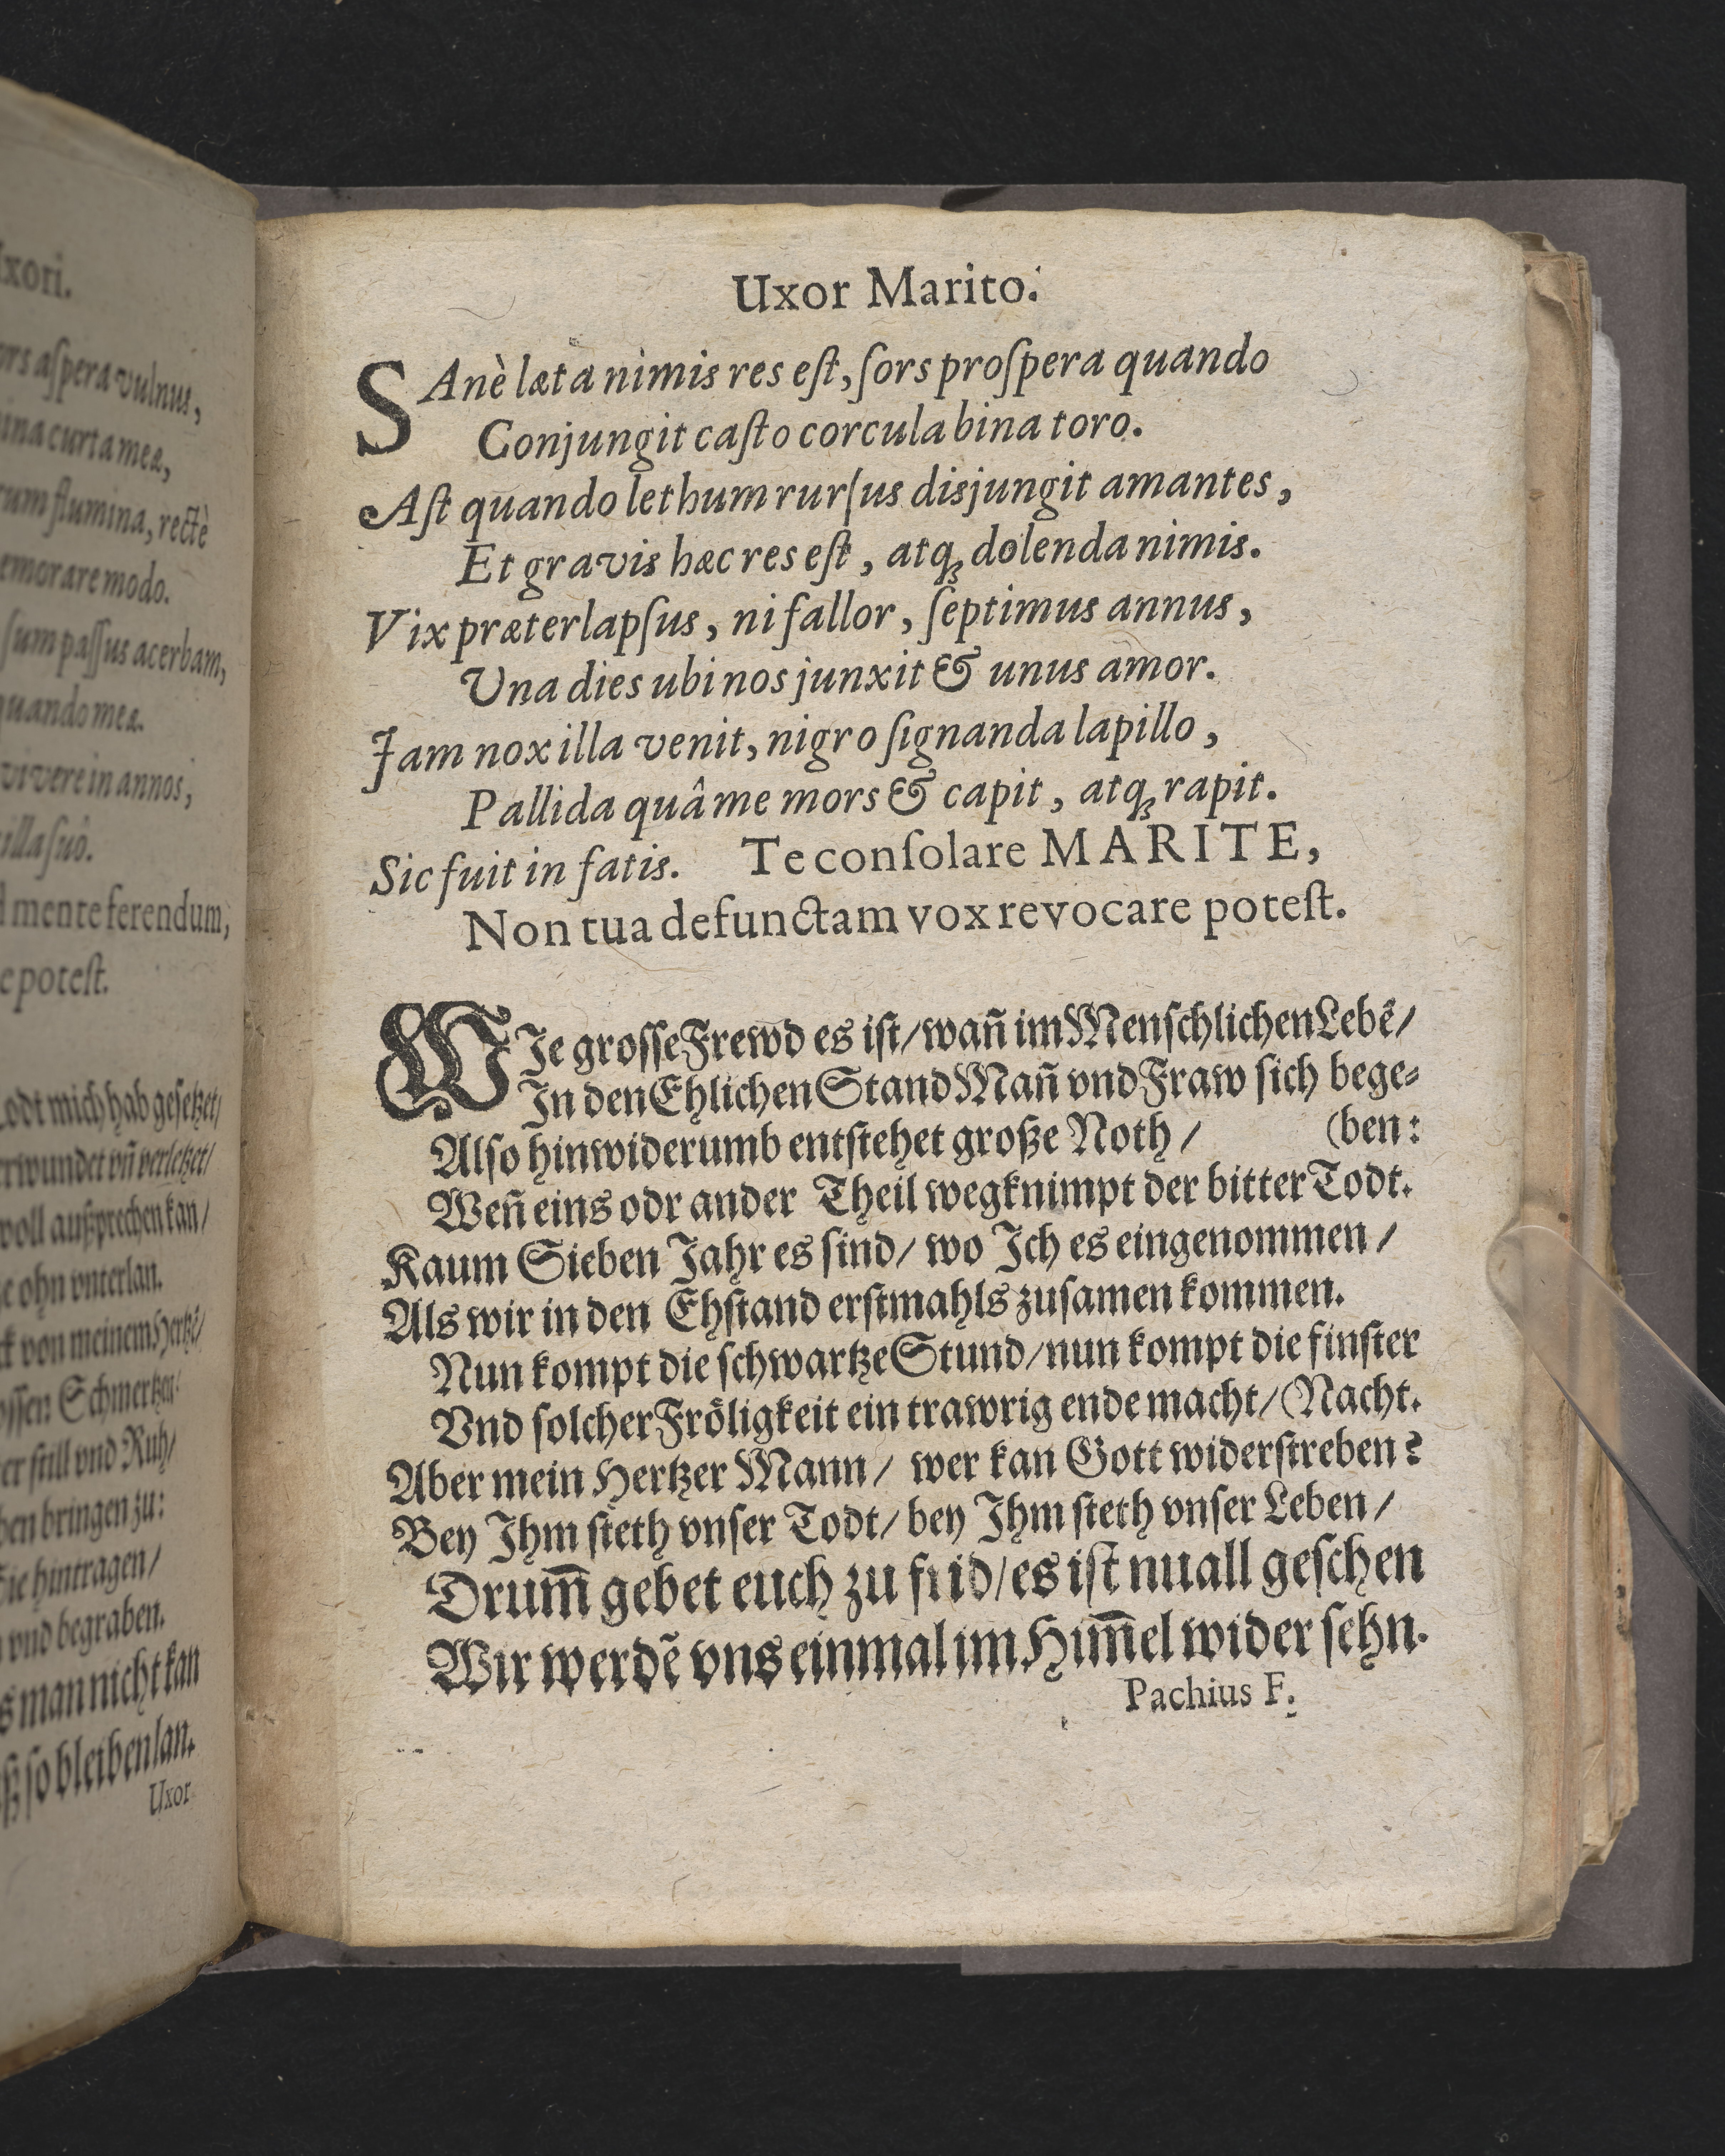 xori.
ors aſpera vulnus,
ina curta meæ,
rum flumina, rectè
emorare modo.
ſum paſſus acerbam,
quando meæ.
vivere in annos,
illa ſuô.
mente ferendum,
e poteſt.
Todt mich hab geſetzet/
erwundet vñ verletzet/
voll außprechen kan/
e ohn vnterlan.
ck von meinem Hertzẽ/
oſſen Schmertzen/
er ſtill vnd Ruh/
ben bringen zu:
Sie hintragen/
vnd begraben.
s man nicht kan
ß ſo bleiben lan.
Uxor
Uxor Marito.
SAnè læta nimis res eſt, ſors proſpera quando
Conjungit caſto corcula bina toro.
Aſt quando lethum rurſus disjungit amantes,
Et gravis hæc res eſt, atq́ʒ dolenda nimis.
Vix præterlapſus, ni fallor, ſeptimus annus,
Una dies ubi nos junxit & unus amor.
Jam nox illa venit, nigro ſignanda lapillo,
Pallida quâ me mors & capit, atqʒ rapit.
Sic fuit in fatis. Te conſolare MARITE,
Non tua defunctam vox revocare poteſt.
WIe groſſe Frewd es iſt/wañ im Menſchlichen Lebẽ/
In den Ehlichen Stand Mañ vnd Fraw ſich bege⸗
Alſo hinwiderumb entſtehet große Noth/ (ben:
Weñ eins odr ander Theil wegknimpt der bitter Todt.
Kaum Sieben Jahr es ſind/ wo Ich es eingenommen/
Als wir in den Ehſtand erſtmahls zuſamen kommen.
Nun kompt die ſchwartze Stund/nun kompt die finſter
Vnd ſolcher Fröligkeit ein trawrig ende macht/ (Nacht.
Aber mein Hertzer Mann/ wer kan Gott widerſtreben?
Bey Ihm ſteth vnſer Todt/ bey Ihm ſteth vnſer Leben/
Drum̃ gebet euch zu frid/es iſt nu all geſchen
Wir werdẽ vns einmal im Him̃el wider ſehn.
Pachius F.